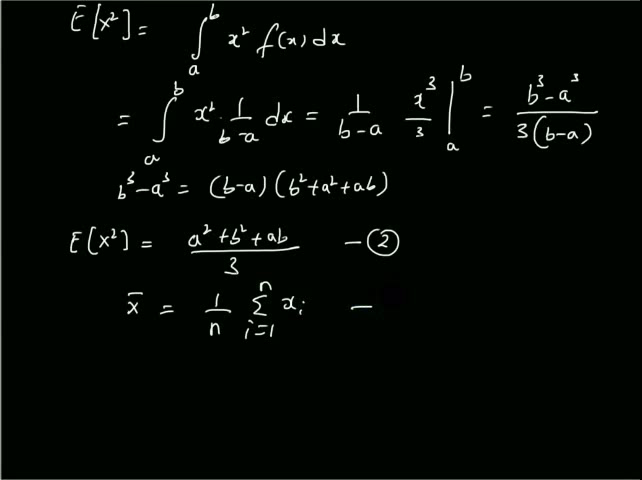 E[x²] = ∫ₐᵇ x² f(x) dx
= ∫ₐᵇ x² · 1/(b-a) dx = 1/(b-a) x³/3 |ₐᵇ = (b³-a³)/(3(b-a))
b³-a³ = (b-a) (b²+a²+ab)
E[x²] = (a²+b²+ab)/3 — ②
x̄ = 1/n Σᵢ₌₁ⁿ xᵢ —